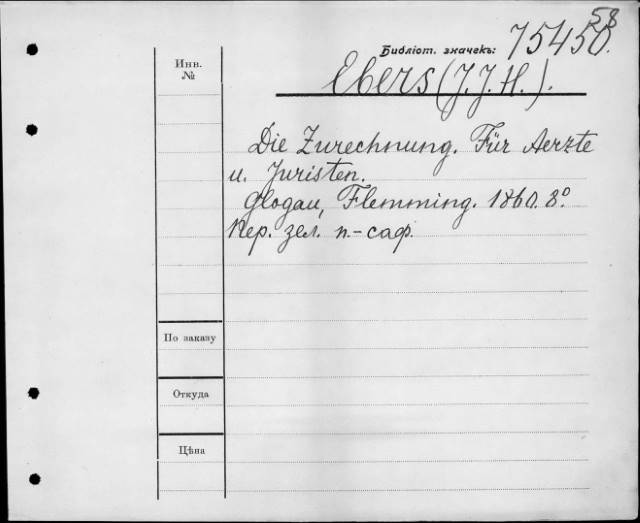 58
Библіот. значекъ: 75450.
Инв.
№
Ebers (J. J. H.).
Die Zurechnung. Für Aerzte
u. Juristen.
Glogau, Flemming. 1860. 8º
Пер. зел. п.-саф.
По заказу
Откуда
Цѣна